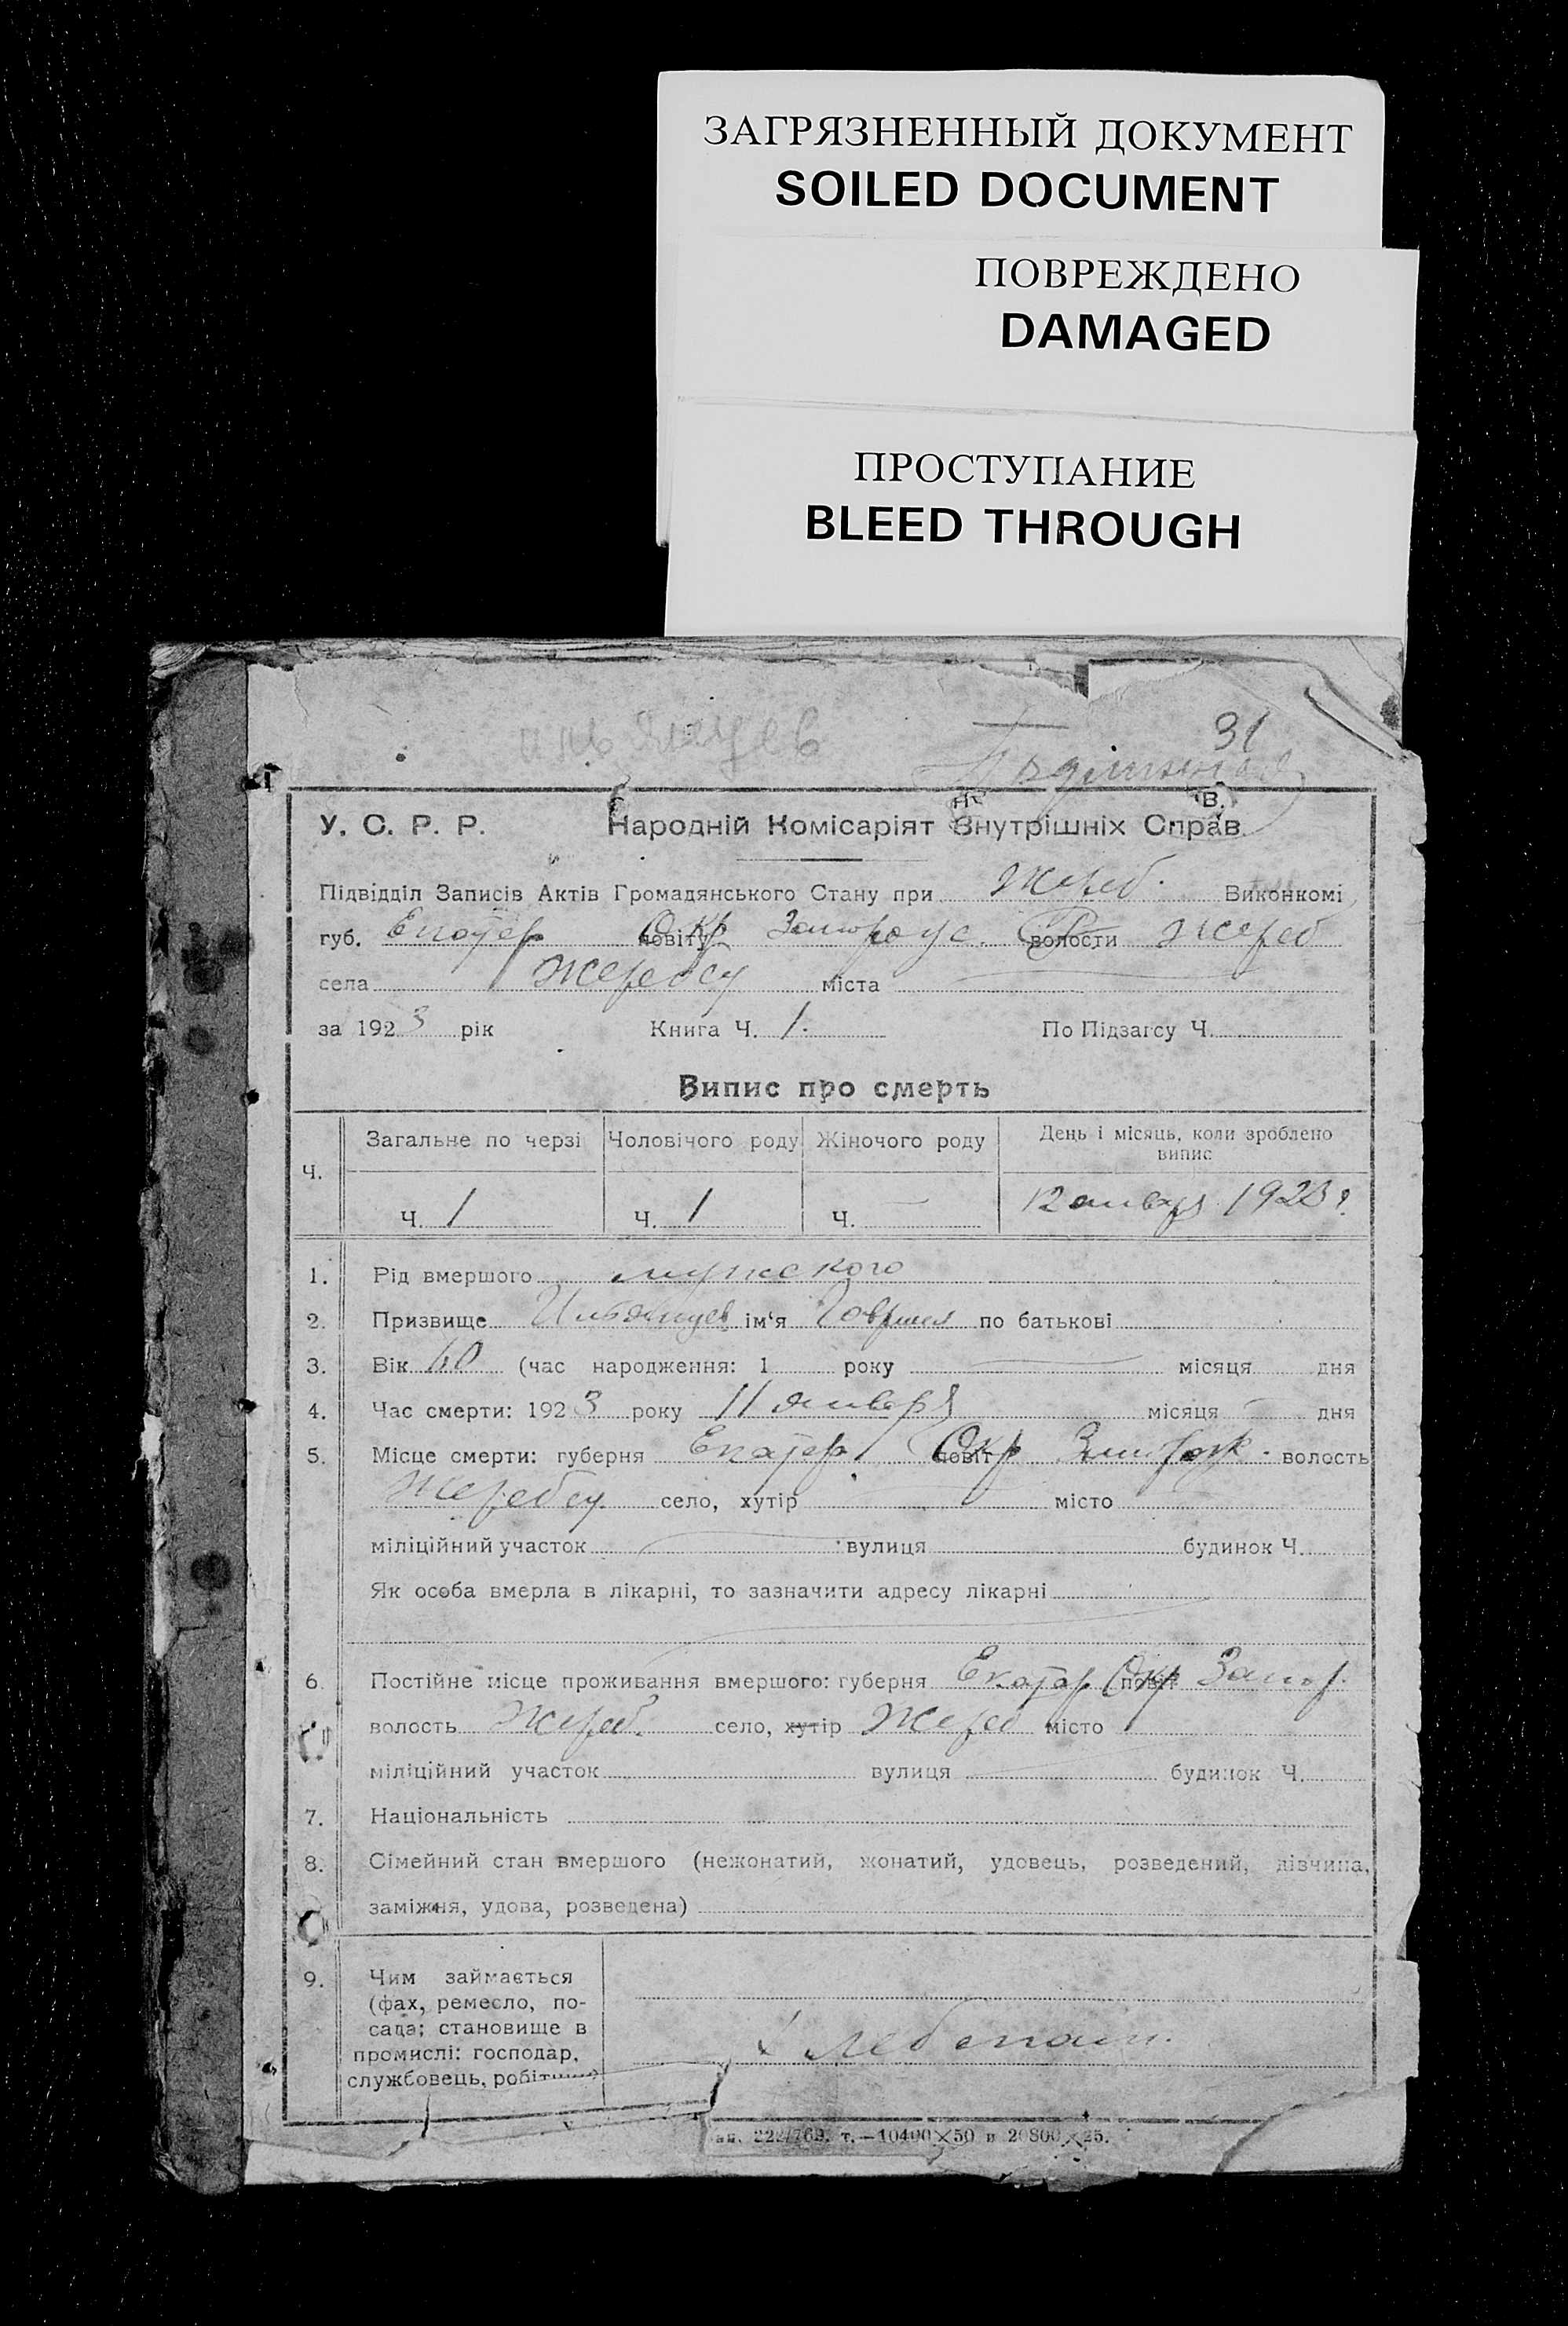 ЗАГРЯЗНЕННЫЙ ДОКУМЕНТ
SOILED DOCUMENT
ПОВРЕЖДЕНО
DAMAGED
ПРОСТУПАНИЕ
BLEED THROUGH
31
У. С. Р. Р. Народній Комісаріят Внутрішніх Справ
Підвідділ Записів Актів Громадянського Стану при Жереб. Виконкомі
губ. Екатер повіту Окр волости Жереб
села міста
за 1923 рік Книга Ч. 1. По Підзагсу Ч.
Випис про смерть
Ч. Загальне по черзі Чоловічого роду Жіночого роду День і місяць, коли зроблено випис
Ч. 1 Ч. 1 Ч. — 12 января 1923 г.
1. Рід вмершого мужского
2. Призвище ім'я по батькові
3. Вік (час народження: 1 року місяця дня
4. Час смерти: 1923 року 11 января місяця дня
5. Місце смерти: губерня Екатер повіт Окр волость
село, хутір місто
міліційний участок вулиця будинок Ч.
Як особа вмерла в лікарні, то зазначити адресу лікарні
6. Постійне місце проживання вмершого: губерня Екатер Окр повіт Запор.
волость Жереб. село, хутір Жереб місто
міліційний участок вулиця будинок Ч.
7. Національність
8. Сімейний стан вмершого (нежонатий, жонатий, удовець, розведений, дівчина,
заміжня, удова, розведена)
9. Чим займається
(фах, ремесло, по-
сада; становище в
промислі: господар,
службовець, робітник)
хлебопаш.
т.—10400×50 и 20800×25.